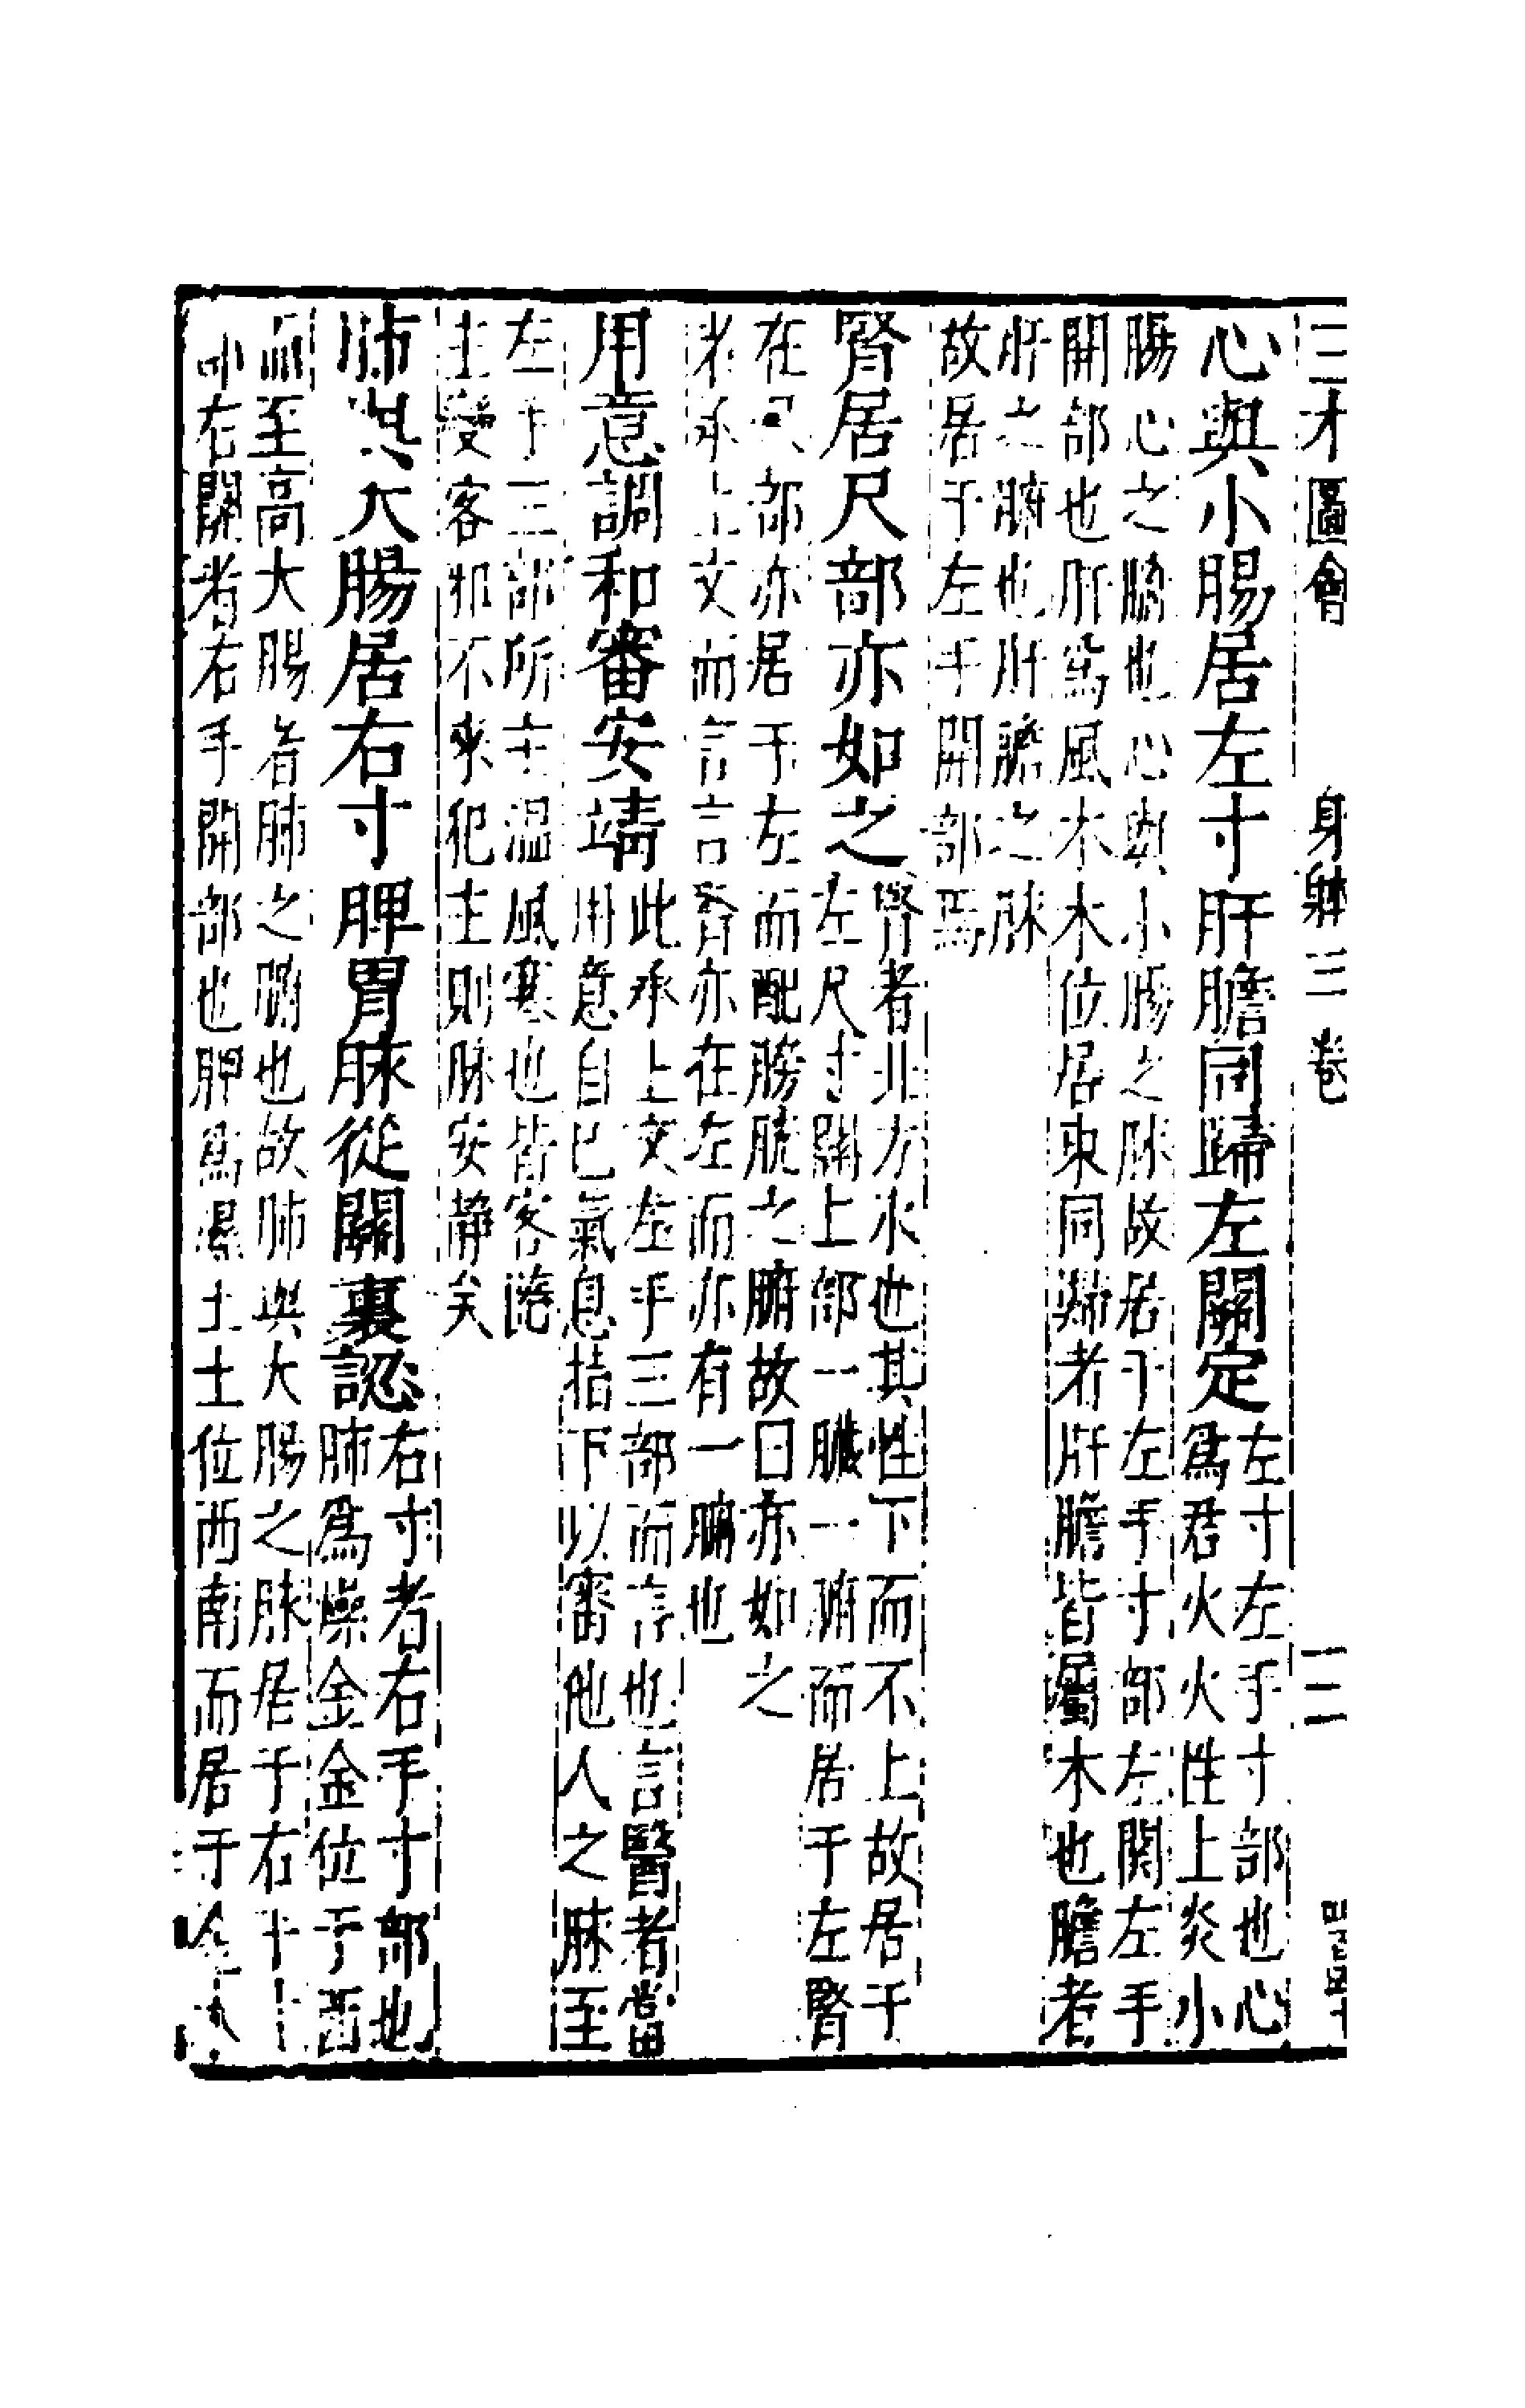 三才圖會 身體三卷 三
心與小腸居左寸肝膽同歸左關定左寸左手寸部也心
爲君火火性上炎小
腸心之腑也心與小腸之脉故居于左手寸部左關左手
關部也肝爲風木木位居東同歸者肝膽皆屬木也膽者
肝之腑也肝膽之脉
故居于左手關部焉
腎居尺部亦如之腎者北方水也其性下而不上故居于
左尺寸關上部一臟一腑而居于左腎
在尺部亦居于左而配膀胱之腑故曰亦如之
者承上文而言言腎亦在左而亦有一腑也
用意調和審安靖此承上文左手三部而言也言醫者當
用意自已氣息指下以審他人之脉至
左手三部所主温風寒也皆客
主變客邪不來犯主則脉安靜矣
肺與大腸居右寸脾胃脉從關裏認右寸者右手寸部也
肺爲燥金金位于西
而至高大腸者肺之腑也故肺與大腸之脉居于右寸
右關者右手關部也脾爲濕土土位西南而居于